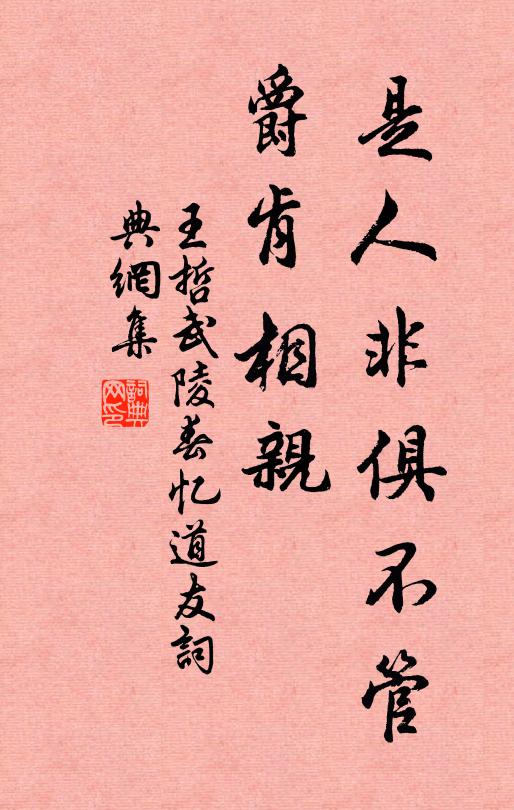 是人非俱不管
爵肯相親
王哲武陵春忆道友詞
典網集
詞典網印